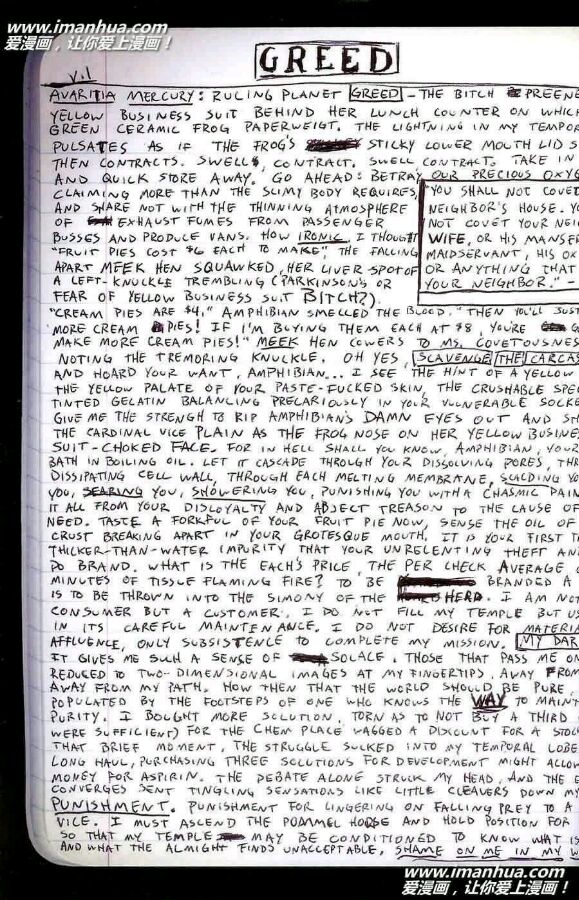 www.imanhua.com
爱漫画，让你爱上漫画！
GREED
V.1
AVARITIA MERCURY: RULING PLANET GREED - THE BITCH PREENE
YELLOW BUSINESS SUIT BEHIND HER LUNCH COUNTER ON WHICH
GREEN CERAMIC FROG PAPERWEIGHT. THE LIGHTNING IN MY TEMPOR
PULSATES AS IF THE FROG'S STICKY LOWER MOUTH LID S
THEN CONTRACTS. SWELLS, CONTRACT. SWELL CONTRACT. TAKE IN
AND QUICK STORE AWAY. GO AHEAD: BETRAY OUR PRECIOUS OXYG
CLAIMING MORE THAN THE SLIMY BODY REQUIRES,
AND SHARE NOT WITH THE THINNING ATMOSPHERE
OF EXHAUST FUMES FROM PASSENGER
BUSSES AND PRODUCE VANS. HOW IRONIC, I THOUGHT
"FRUIT PIES COST $6 EACH TO MAKE" THE FALLING
APART MEEK HEN SQUAWKED, HER LIVER-SPOT OF
A LEFT-KNUCKLE TREMBLING (PARKINSON'S OR
FEAR OF YELLOW BUSINESS SUIT BITCH?).
YOU SHALL NOT COVET
NEIGHBOR'S HOUSE. YO
NOT COVET YOUR NEIG
WIFE, OR HIS MANSER
MAIDSERVANT, HIS OX
OR ANYTHING THAT
YOUR NEIGHBOR." -
"CREAM PIES ARE $4," AMPHIBIAN SMELLED THE BLOOD. "THEN YOU'LL JUST
MORE CREAM PIES! IF I'M BUYING THEM EACH AT $8, YOU'RE G
MAKE MORE CREAM PIES!" MEEK HEN COWERS TO MS. COVETOUSNES
NOTING THE TREMORING KNUCKLE. OH YES, SCAVENGE THE CARCAS
AND HOARD YOUR WANT, AMPHIBIAN... I SEE THE HINT OF A YELLOW
THE YELLOW PALATE OF YOUR PASTE-FUCKED SKIN, THE CRUSHABLE SPE
TINTED GELATIN BALANCING PRECARIOUSLY IN YOUR VULNERABLE SOCKE
GIVE ME THE STRENGH TO RIP AMPHIBIAN'S DAMN EYES OUT AND SH
THE CARDINAL VICE PLAIN AS THE FROG NOSE ON HER YELLOW BUSINE
SUIT-CHOKED FACE. FOR IN HELL SHALL YOU KNOW, AMPHIBIAN, YOUR
BATH IN BOILING OIL. LET IT CASCADE THROUGH YOUR DISSOLVING PORES, THR
DISSIPATING CELL WALL, THROUGH EACH MELTING MEMBRANE, SCALDING YO
YOU, SEARING YOU, SHOWERING YOU, PUNISHING YOU WITH A CHASMIC PAIN
IT ALL FROM YOUR DISLOYALTY AND ABJECT TREASON TO THE CAUSE OF
NEED. TASTE A FORKFUL OF YOUR FRUIT PIE NOW, SENSE THE OIL OF
CRUST BREAKING APART IN YOUR GROTESQUE MOUTH. IT IS YOUR FIRST T
THICKER-THAN-WATER IMPURITY THAT YOUR UNRELENTING THEFT AN
DO BRAND. WHAT IS THE EACH'S PRICE THE PER CHECK AVERAGE O
MINUTES OF TISSUE FLAMING FIRE? TO BE BRANDED A
IS TO BE THROWN INTO THE SIMONY OF THE HERD. I AM NOT
CONSUMER BUT A CUSTOMER. I DO NOT FILL MY TEMPLE BUT US
IN ITS CAREFUL MAINTENANCE. I DO NOT DESIRE FOR MATERIA
AFFLUENCE, ONLY SUBSISTENCE TO COMPLETE MY MISSION. MY DAR
IT GIVES ME SUCH A SENSE OF SOLACE. THOSE THAT PASS ME ON
REDUCED TO TWO-DIMENSIONAL IMAGES AT MY FINGERTIPS. AWAY FROM
AWAY FROM MY PATH. HOW THEN THAT THE WORLD SHOULD BE PURE,
POPULATED BY THE FOOTSTEPS OF ONE WHO KNOWS THE WAY TO MAINT
PURITY. I BOUGHT MORE SOLUTION, TORN AS TO NOT BUY A THIRD (
WERE SUFFICIENT) FOR THE CHEM PLACE WAGGED A DISCOUNT FOR A STOC
THAT BRIEF MOMENT, THE STRUGGLE SUCKED INTO MY TEMPORAL LOBE
LONG HAUL, PURCHASING THREE SOLUTIONS FOR DEVELOPMENT MIGHT ALLOW
MONEY FOR ASPIRIN. THE DEBATE ALONE STRUCK MY HEAD, AND THE E
CONVERGES SENT TINGLING SENSATIONS LIKE LITTLE CLEAVERS DOWN MY
PUNISHMENT. PUNISHMENT FOR LINGERING ON FALLING PREY TO A
VICE. I MUST ASCEND THE POMMEL HORSE AND HOLD POSITION FOR
SO THAT MY TEMPLE MAY BE CONDITIONED TO KNOW WHAT IS
AND WHAT THE ALMIGHT FINDS UNACCEPTABLE, SHAME ON ME IN MY W
www.imanhua.com
爱漫画，让你爱上漫画！